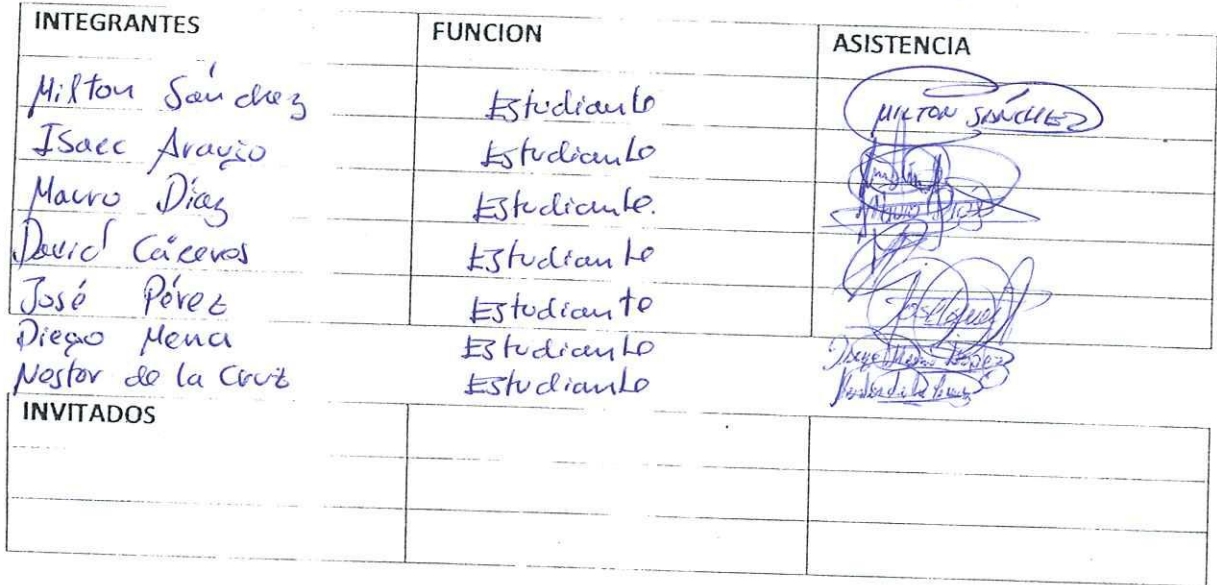 INTEGRANTES FUNCION ASISTENCIA
Milton Sánchez Estudiante MILTON SÁNCHEZ
Isaec Araujo Estudiante
Mauro Díaz Estudiante.
David Cáceres Estudiante
José Pérez Estudiante
Diego Mena Estudiante Diego Mena
Nestor de la Cruz Estudiante Nestor de la Cruz
INVITADOS